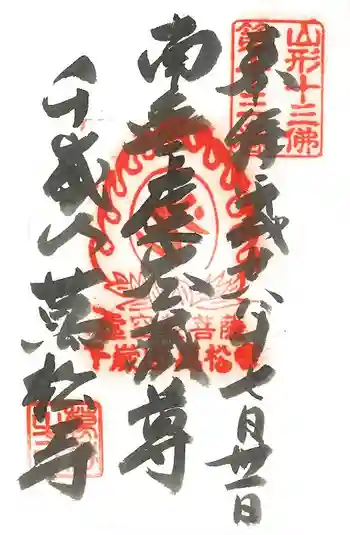 山形十三佛
第十三番
奉拝 平成 七月 日
南無虚空蔵尊
千歳山 萬松寺
虚空蔵菩薩
千歳山萬松寺